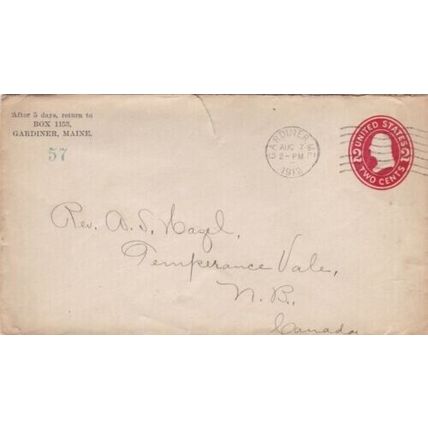 After 5 days, return to
BOX 1153,
GARDINER, MAINE.
57
GARDINER, ME.
AUG 7
2-PM
1912
UNITED STATES
2 2
TWO CENTS
Rev. A. S. Hazel,
Temperance Vale,
N. B.
Canada